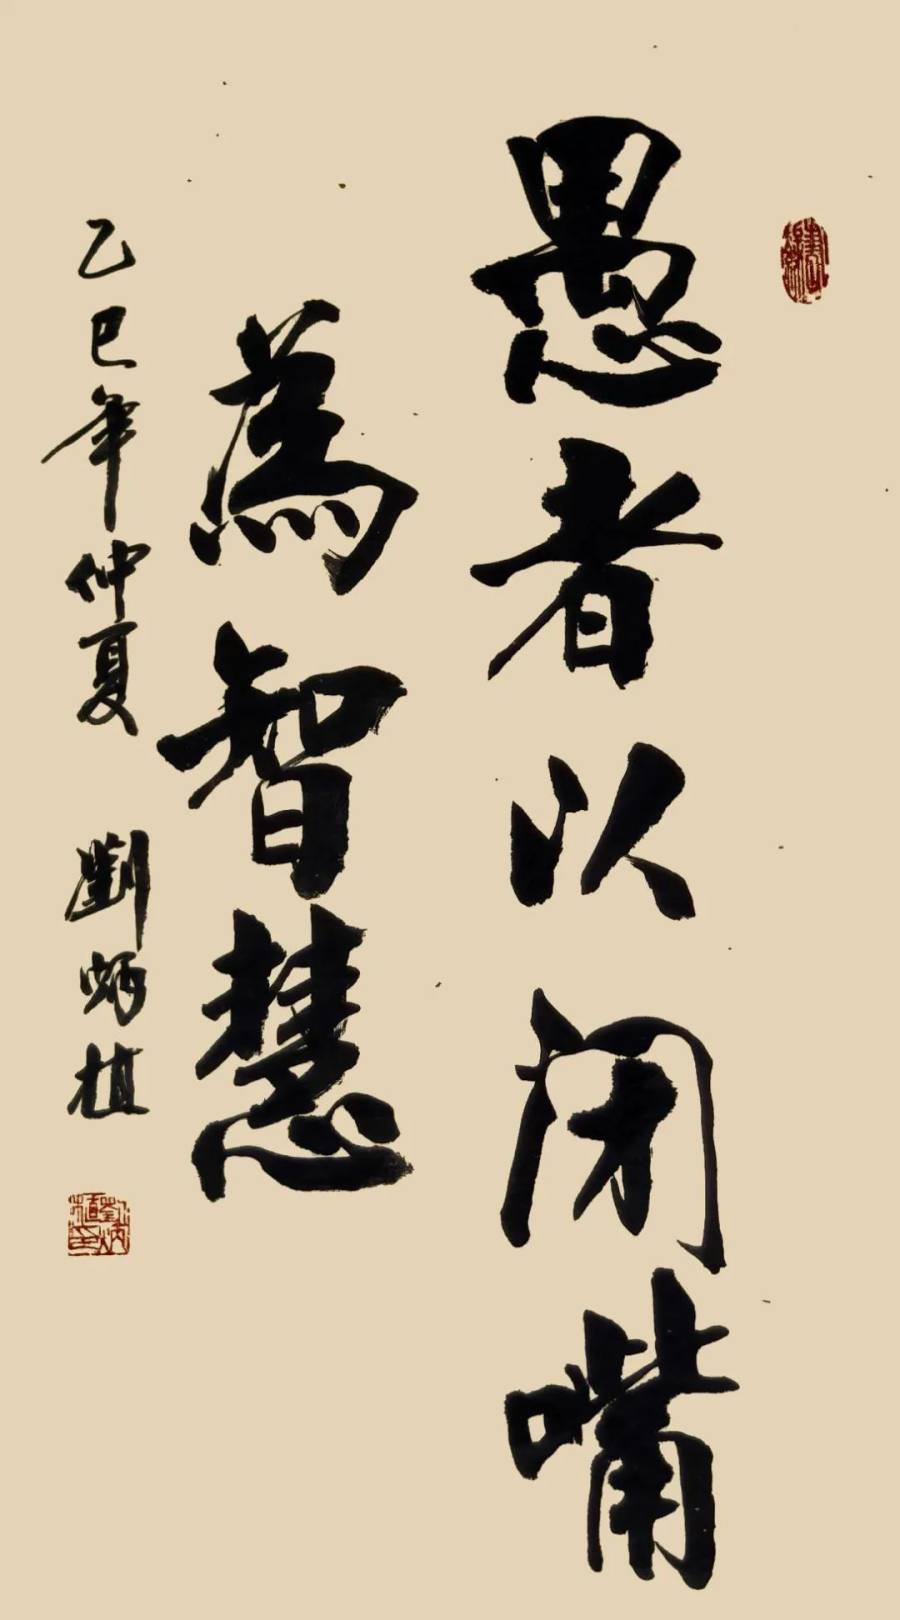 愚者以闭嘴
為智慧
乙巳年仲夏 劉炳植
劉炳植印